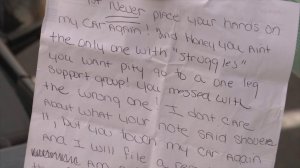 1st Never place your hands on
my CAR AGAIN! Second Honey you Aint
the only one with "struggles"
you want pity go to a one leg
support group! you messed with
the wrong one! I dont care
About what your note said shove it
!!, but you touch my car Again
And I will file a